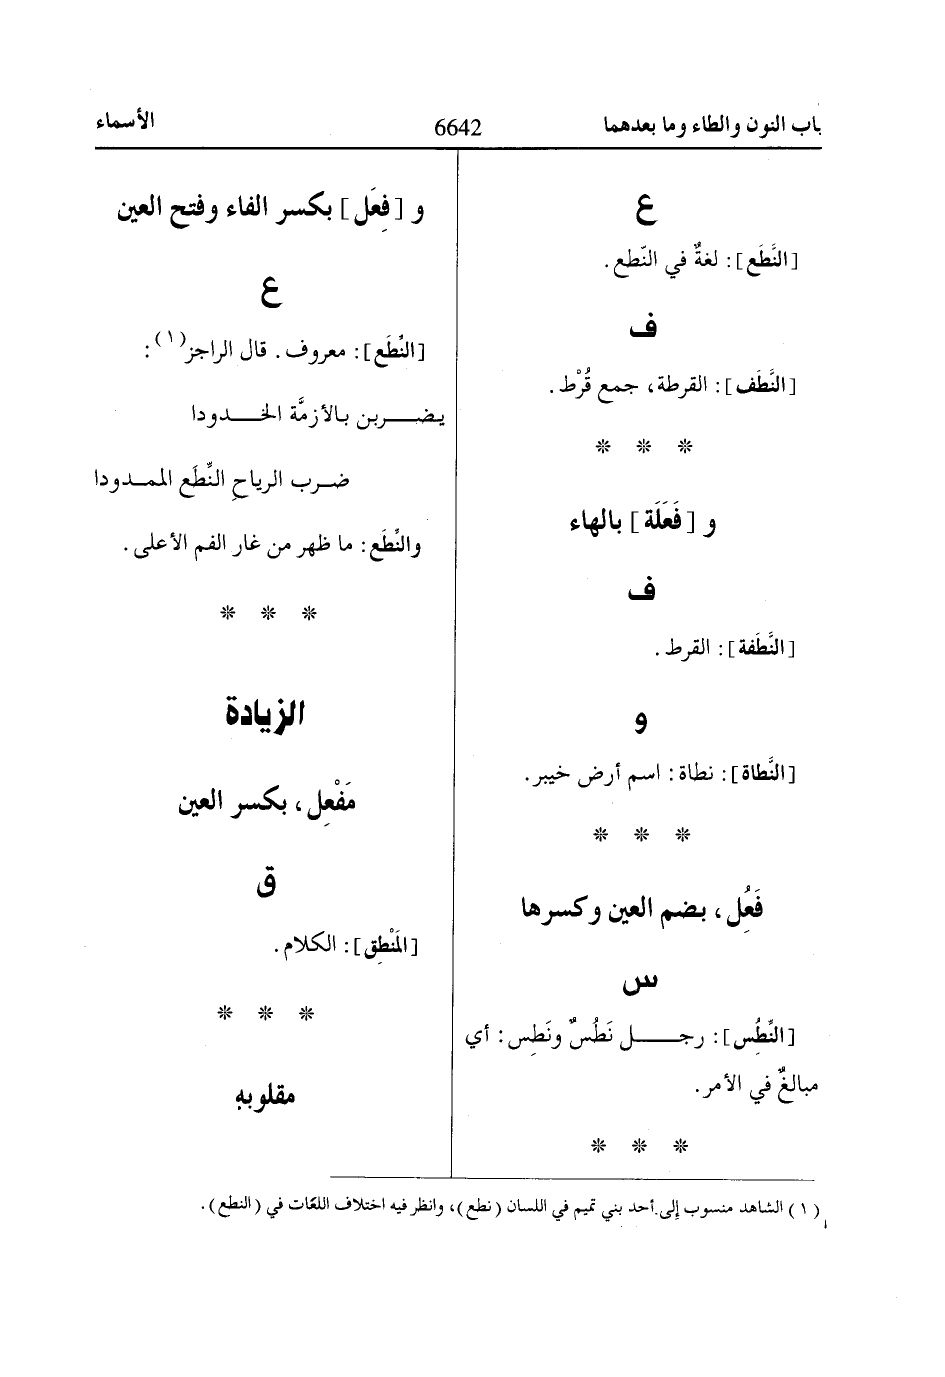 باب النون والطاء وما بعدهما 6642 الأسماء
ع
[النَّطَع]: لغةٌ في النّطع.
ف
[النَّطَف]: القرطة، جمع قُرْط.
* * *
و [فَعَلَة] بالهاء
ف
[النَّطَفة]: القرط.
و
[النَّطاة]: نطاة: اسم أرض خيبر.
* * *
فَعُل، بضم العين وكسرها
س
[النِّطُس]: رجـــل نَطُسٌ ونَطِس: أي
مبالغٌ في الأمر.
* * *
و [فِعَل] بكسر الفاء وفتح العين
ع
[النِّطَع]: معروف. قال الراجز(١):
يضـــربن بالأزمَّة الخـــدودا
ضـرب الرياحِ النِّطَع الممـدودا
والنِّطَع: ما ظهر من غار الفم الأعلى.
* * *
الزيادة
مَفْعِل، بكسر العين
ق
[المَنْطِق]: الكلام.
* * *
مقلوبه
(١) الشاهد منسوب إلى أحد بني تميم في اللسان (نطع)، وانظر فيه اختلاف اللغات في (النطع).